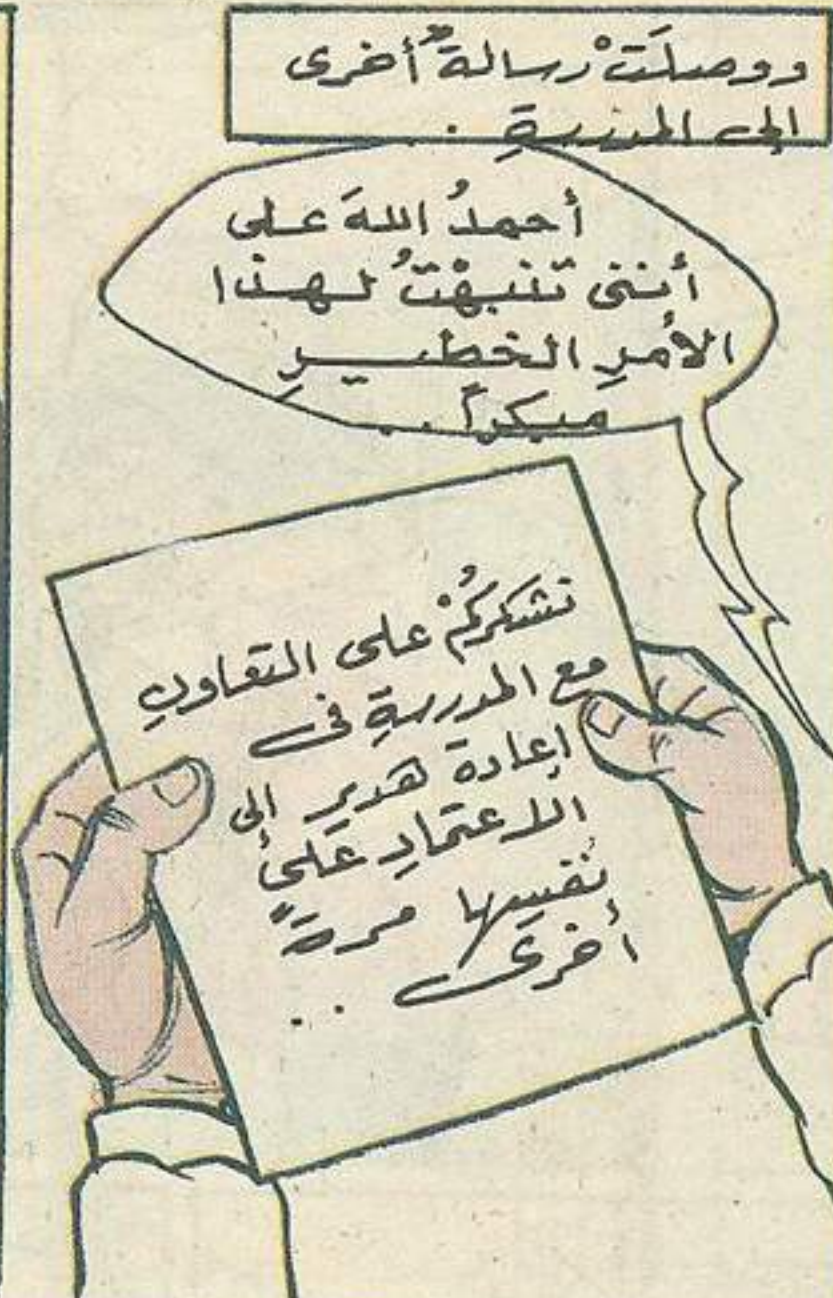 ووصلَتْ رسالةٌ أخرى
إلى المدرسةِ ..
أحمدُ اللهَ على
أننى تنبهْتُ لهذا
الأمرِ الخطيرِ
مبكراً ..
نشكركُمْ على التعاونِ
مع المدرسةِ فى
إعادة هديرِ إلى
الاعتمادِ على
نفسِها مرةً
أخرى ...